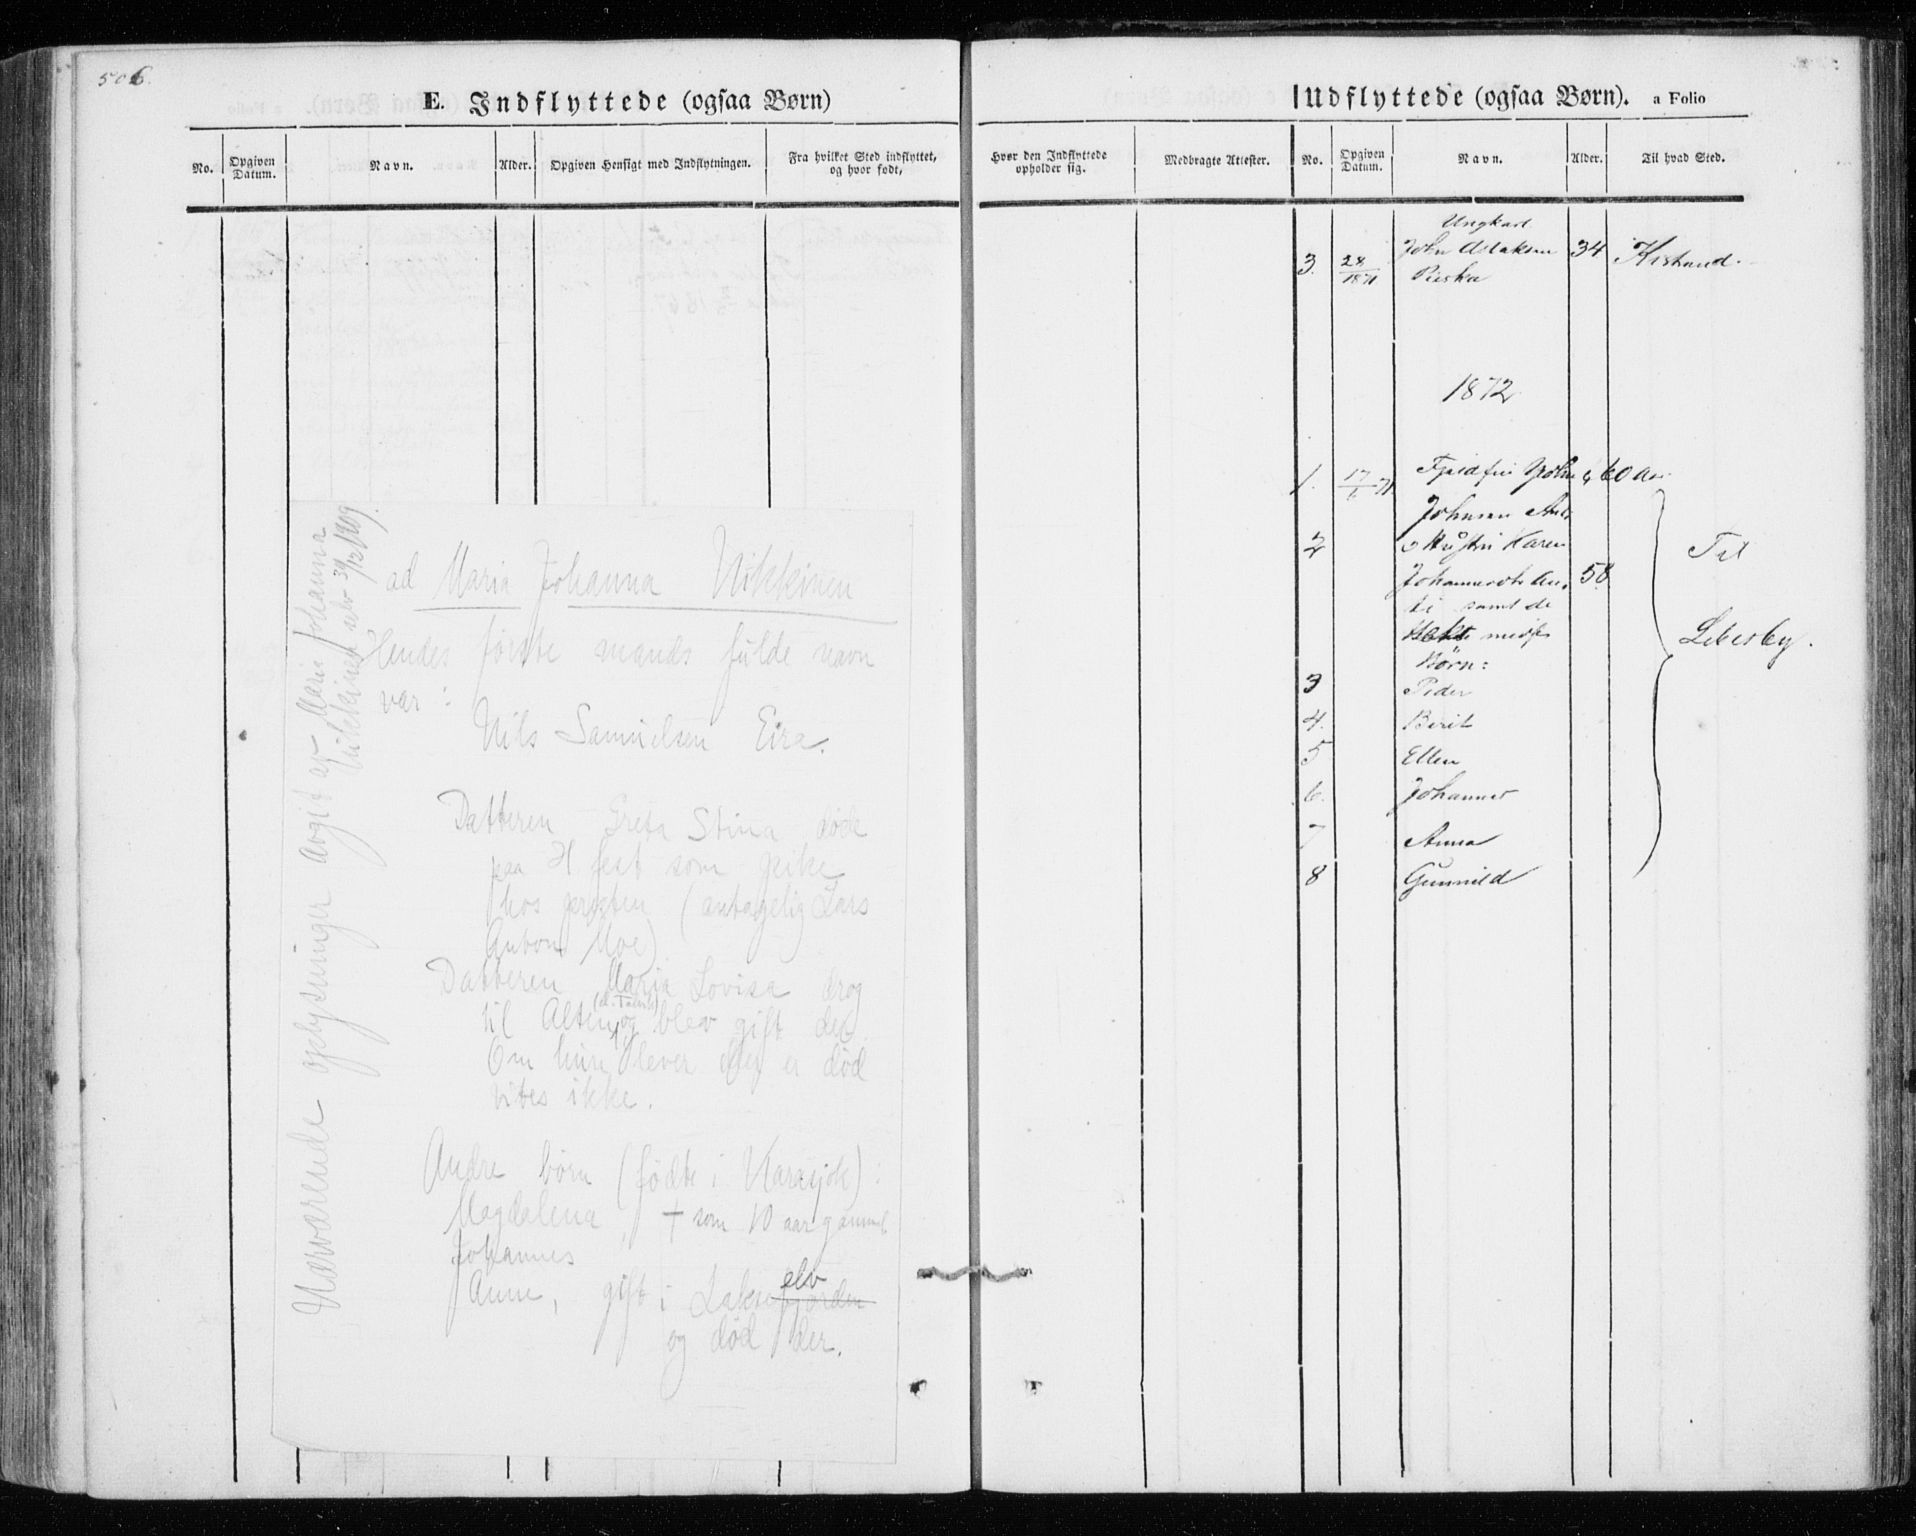 506.
E. Indflyttede (ogsaa Børn)
No.
Opgiven Datum.
Navn.
Alder.
Opgiven Hensigt med Indflytningen.
Fra hvilket Sted indflyttet, og hvor født,
ad Maria Johanna Nikkinen
Hendes første mands fulde navn
var:
Nils Samuelsen Eira.
Datteren Greta Stina døde
paa H.fest som pike
hos presten (antagelig Lars
Anton Moe)
Datteren Maria Lovisa drog
til Alten, og blev gift der
Om hun lever er død
vites ikke.
Andre børn (fødte i Karasjok):
Magdalena, † som 10 aar gammel
Johannes
Anne, gift i Lakselv
og død der.
Nærværende oplysninger avgit av Maria Johanna
Nikkinen
Udflyttede (ogsaa Børn). a Folio
Hvor den Indflyttede opholder sig.
Medbragte Attester.
No.
Opgiven Datum.
Navn.
Alder.
Til hvad Sted.
Ungkarl
3. 28/1871 John Aslaksen 34 Kistrand.
Pieska
1872
1. 60 Aar
Johnsen
2 Hustru Karen
58
samt de
Børn:
Til
Lebesby.
3 Peder
4. Berit
5 Ellen
6. Johannes
7 Anna
8 Gunnild